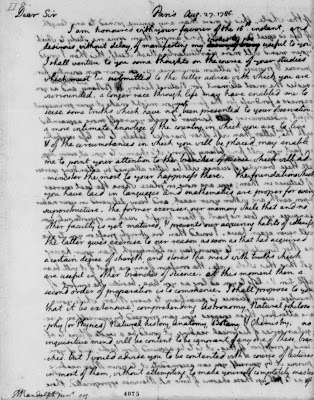 Dear Sir Paris Aug. 27. 1786.
I am honoured with your favour of the 16th instant, and
desirous without delay of manifesting my wishes to be useful to you
I shall venture to you some thoughts on the course of your studies
which must be submitted to the better advice with which you are
surrounded. a longer race through life may have enabled me to
seise some truths which have not yet been presented to your observation
a more intimate knowlege of the country in which you are to live
& of the circumstances in which you will be placed may enable
me to point your attention to the branches of science which will ad
minister the most to your happiness there. The foundations which
you have laid in languages and mathematics are proper for every
superstructure. the former exercises our memory while that and no
other faculty is yet matured, & prevents our acquiring habits of idleness.
the latter gives exercise to our reason as soon as that has acquired
a certain degree of strength, and stores the mind with truths which
are useful in other branches of science. at this moment then a
second order of preparation is to commence. I shall propose to you
that it be extensive, comprehending Astronomy, Natural philoso
phy (or Physics) Natural history, Anatomy, Botany & Chemistry. no
inquisitive mind will be content to be ignorant of any one of these bran
ches. but I would advise you to be contented with a course of lectures
in most of them, without attempting to make yourself completely master of
TMRandolph junr. esq.
4075